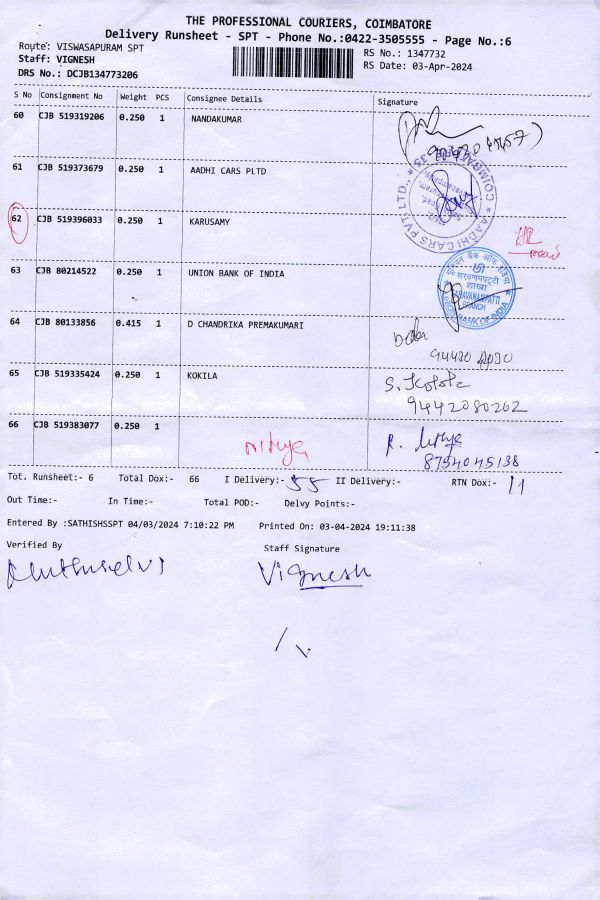 THE PROFESSIONAL COURIERS, COIMBATORE
Delivery Runsheet - SPT - Phone No.:0422-3505555 - Page No.:6
Route: VISWASAPURAM SPT
RS No.: 1347732
Staff: VIGNESH
RS Date: 03-Apr-2024
DRS No.: DCJB134773206
S No Consignment No Weight PCS Consignee Details Signature
60 CJB 519319206 0.250 1 NANDAKUMAR
61 CJB 519373679 0.250 1 AADHI CARS PLTD
AADHI CARS PVT LTD., * COIMBATORE - 35 *
62 CJB 519396033 0.250 1 KARUSAMY
63 CJB 80214522 0.250 1 UNION BANK OF INDIA
यूनियन बैंक ऑफ इंडिया
शाखा
SARAVANAMPATTI
BRANCH
UNION BANK OF INDIA
64 CJB 80133856 0.415 1 D CHANDRIKA PREMAKUMARI
65 CJB 519335424 0.250 1 KOKILA S. Kokila
9442080262
66 CJB 519383077 0.250 1 Nithya R. Nithya
8754045138
Tot. Runsheet:- 6 Total Dox:- 66 I Delivery:- 55 II Delivery:- RTN Dox:- 11
Out Time:- In Time:- Total POD:- Delvy Points:-
Entered By :SATHISHSSPT 04/03/2024 7:10:22 PM Printed On: 03-04-2024 19:11:38
Verified By Staff Signature
Muthuselvi Vignesh